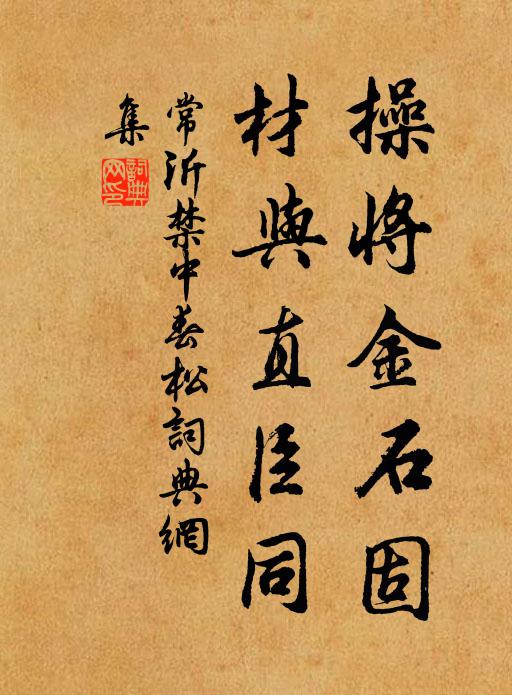 操將金石固
材與直臣同
常沂禁中春松詞典網
集
詞典網印